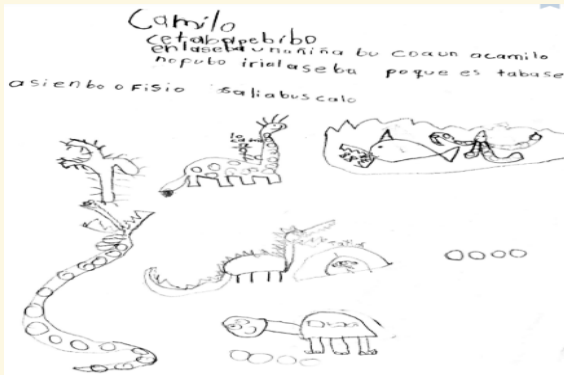 Camilo
cetabapebibo
enlaseba unañiña bu coaun acamilo
noputo irialaseba poque es tabase
asienbo ofisio saliabuscalo